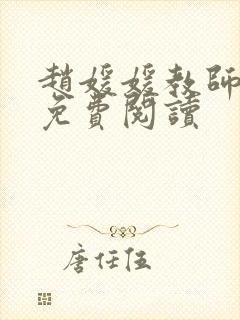 趙媛媛教師
免費閱讀
唐任伍